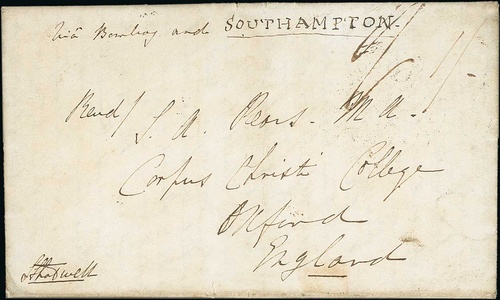 Via Bombay and SOUTHAMPTON.
Revd/
S. A. Pears. M A.
Corpus Christi College
Oxford
England